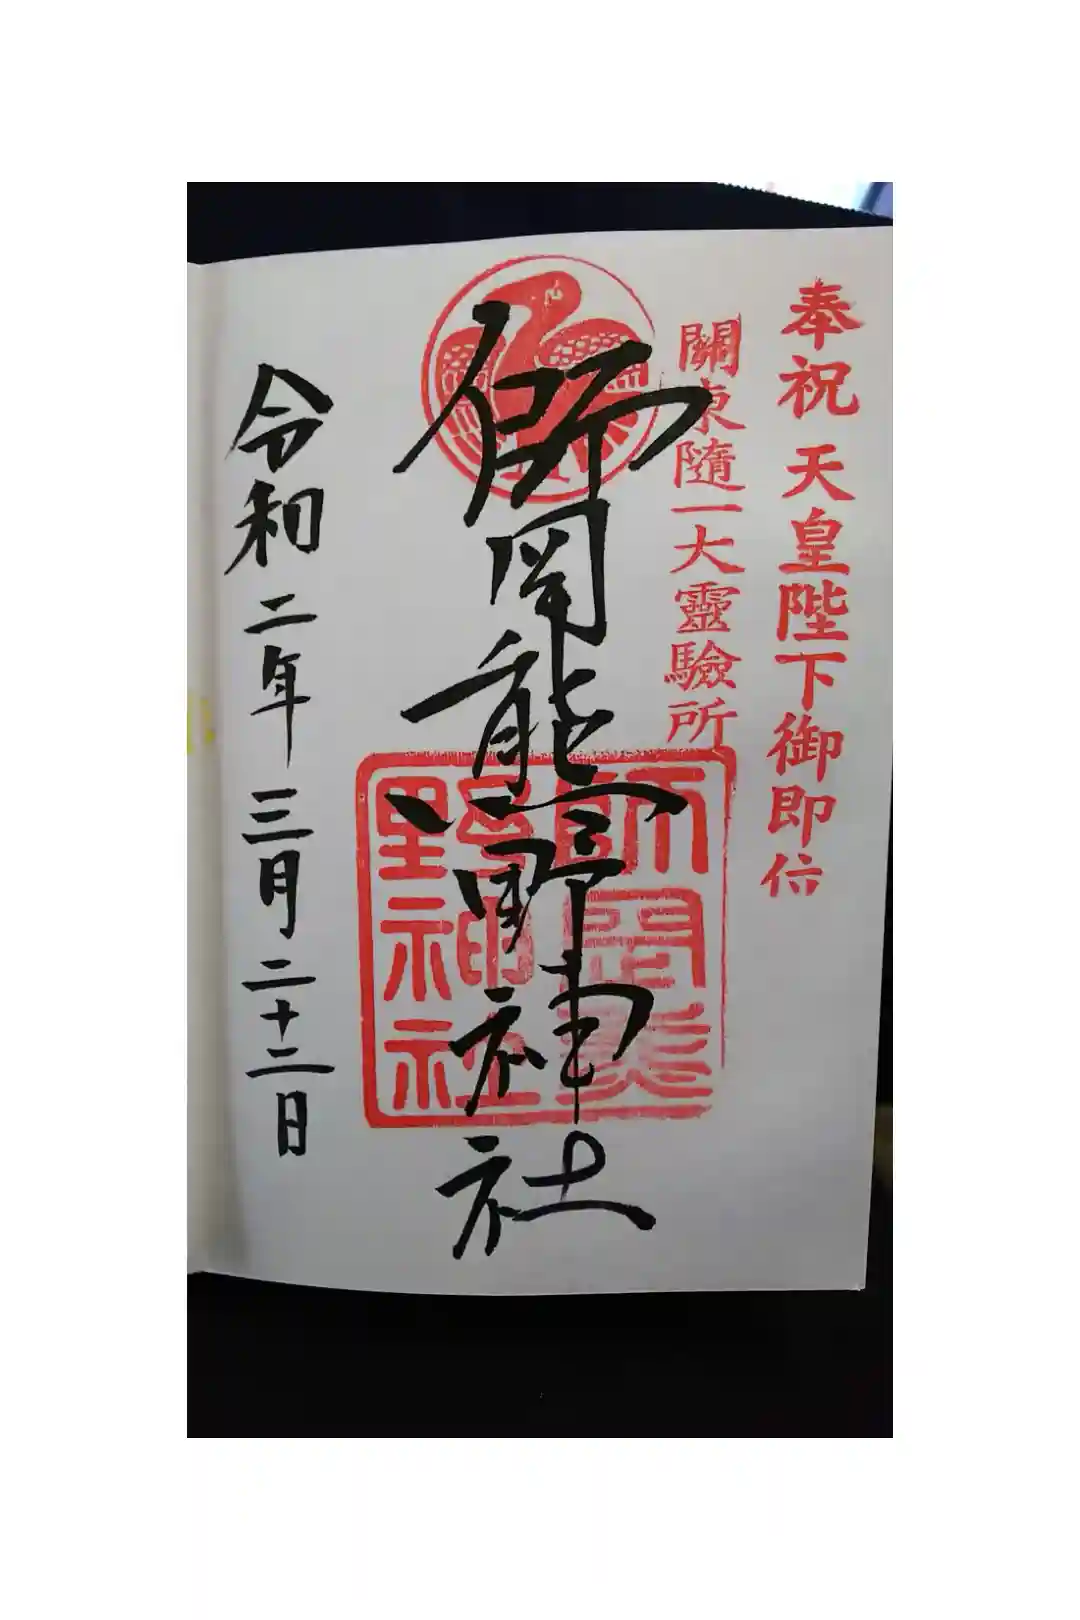 奉祝 天皇陛下御即位
關東隨一大靈驗所
師岡熊野神社
師岡熊
野神社
令和二年三月二十二日